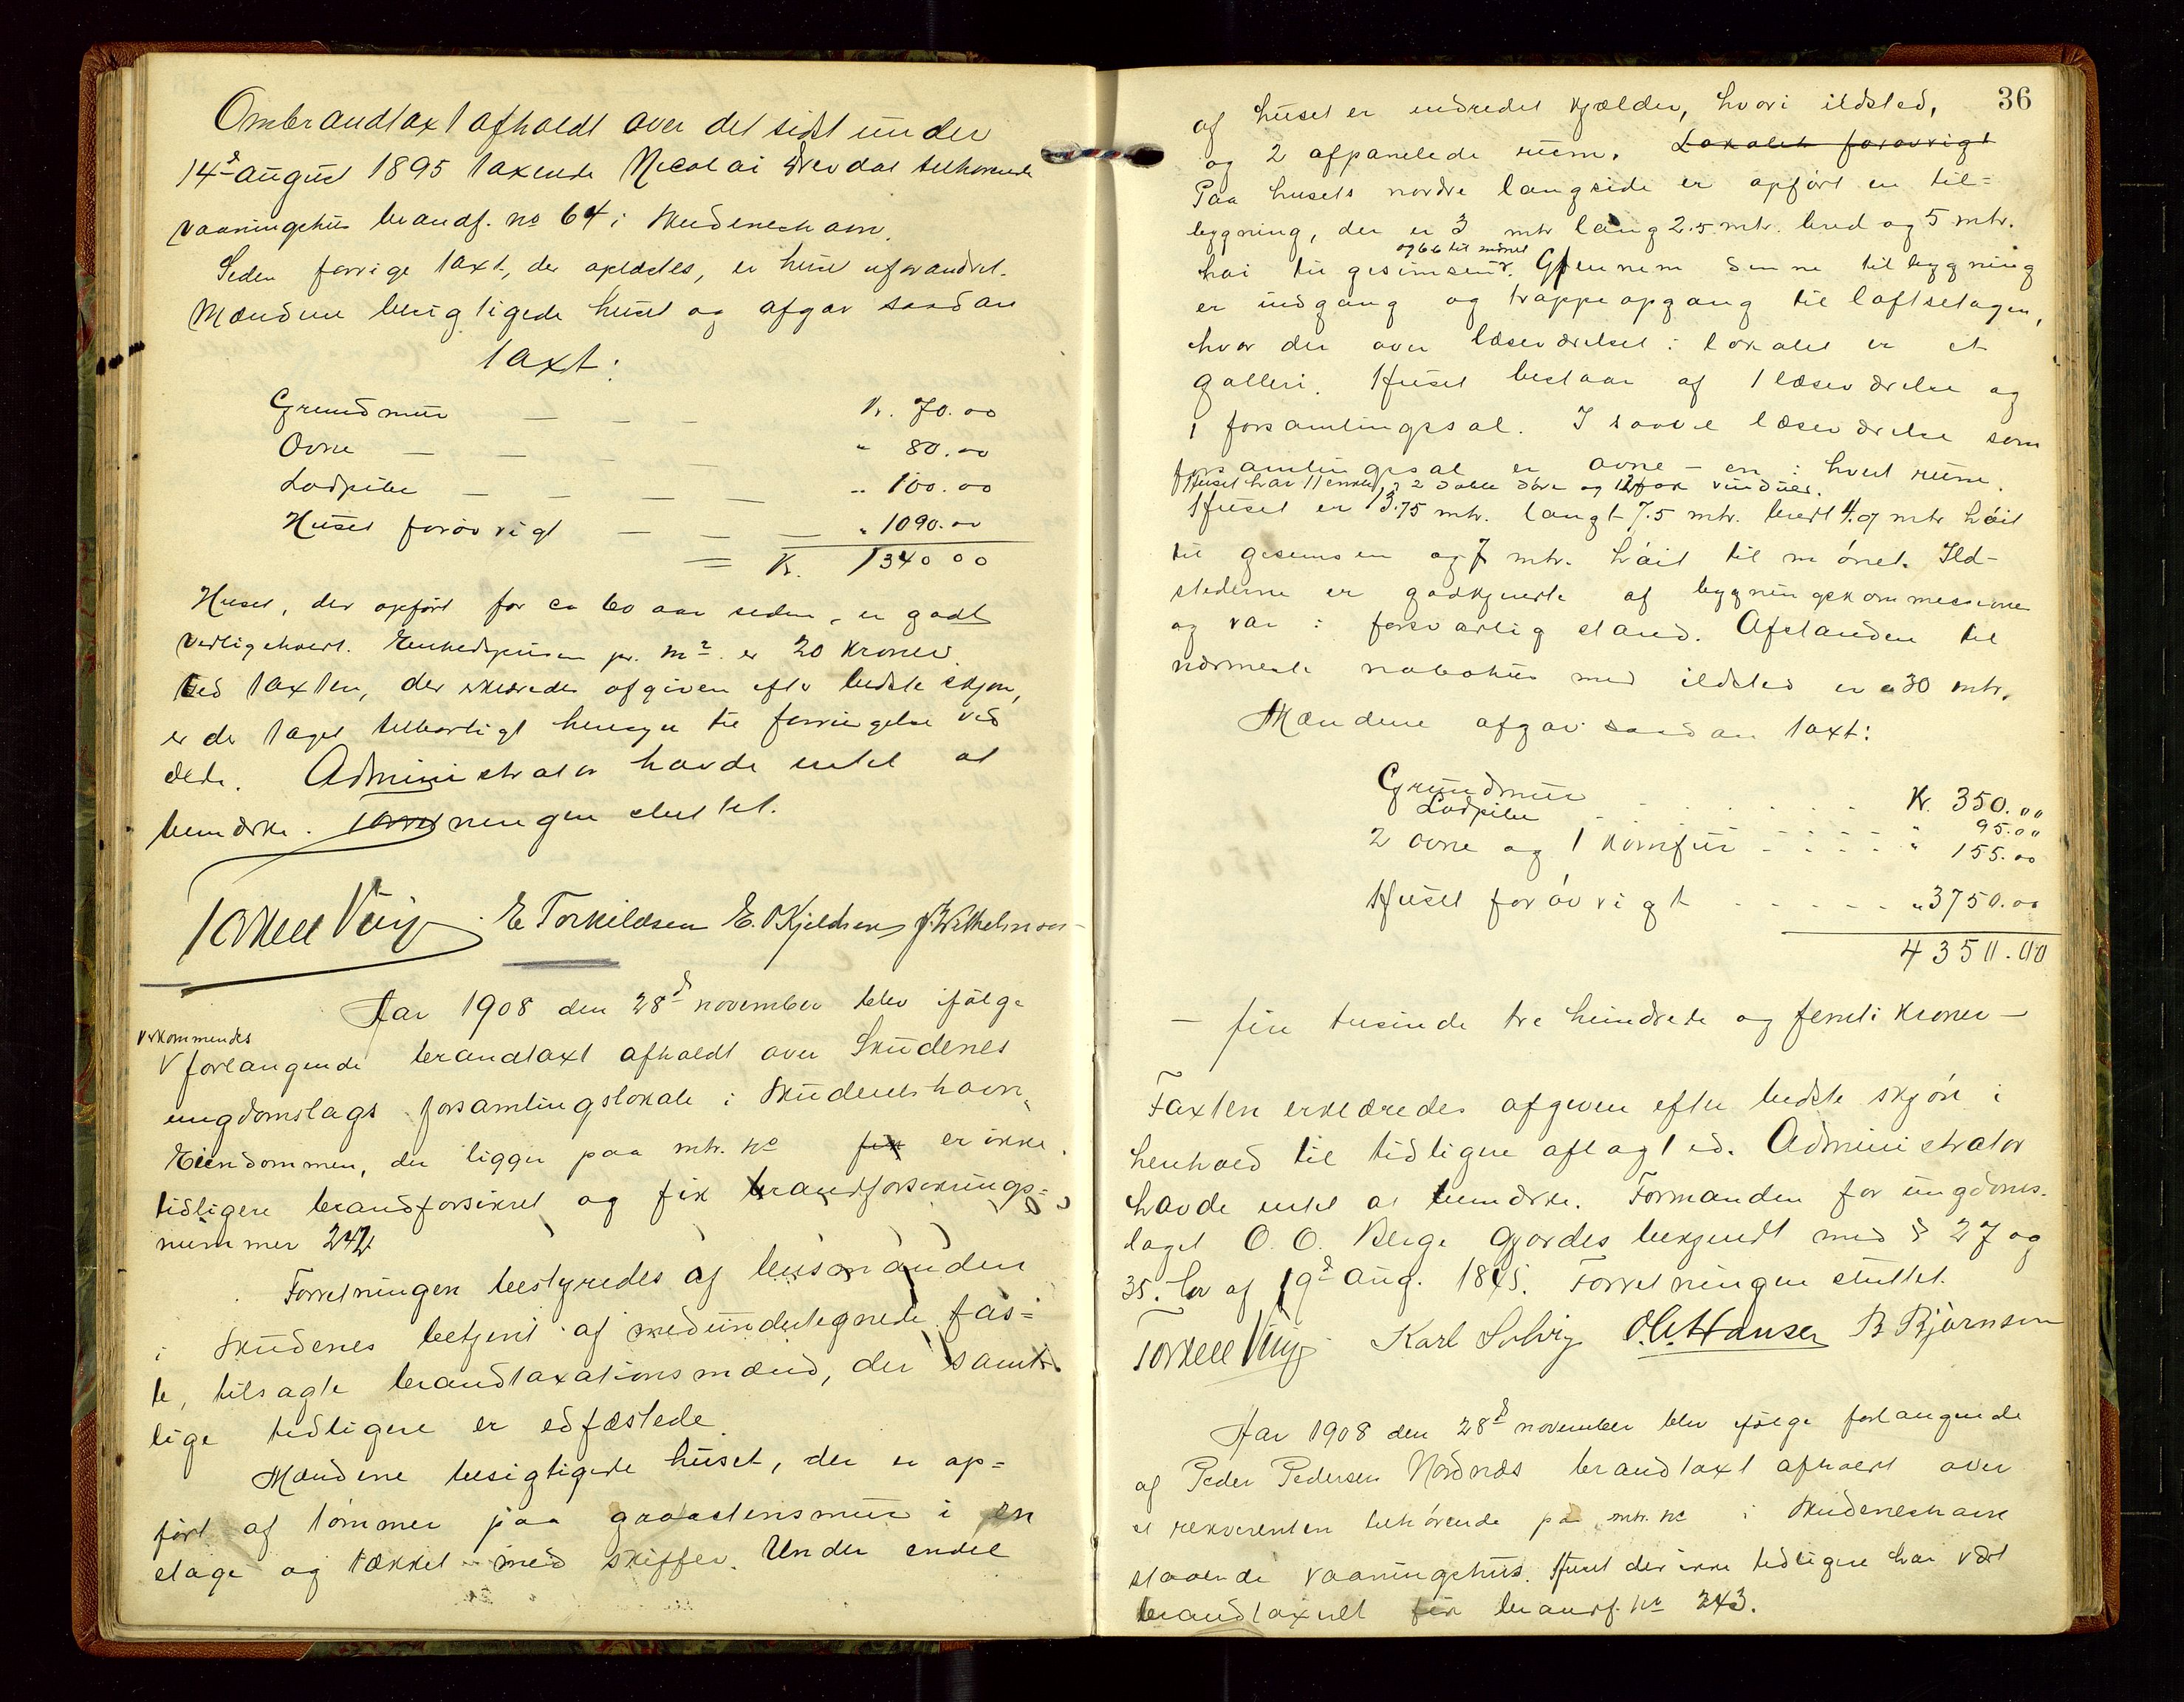 Ombrandtaxt afholdt over det sidst under
14d august 1895 taxerede Nicolai Drevdal tilhørende
vaaningshus brandf. no 64 i Skudeneshavn.
Siden forrige taxt, der oplæstes, er huset uforandret.
Mændene besigtigede huset og afgav saadan
taxt:
Grundmur — — — Kr. 70.00
Ovne — — — — " 80.00
Ladpiber — — — — " 100.00
Huset forøvrigt — — — " 1090.00
= Kr. 1340 00
Huset, der opført for ca 60 aar siden, er godt
vedligeholdt. Enhedsprisen pr. m2 er 20 kroner.
Ved taxten, der erklæredes afgiven efter bedste skjøn,
er der taget tilbørligt hensyn til forringelse ved
ælde. Administrator havde intet at
bemærke. Forretningen sluttet.
Torkell Vinje E Torkildsen E. O Kjeldsen J. Wilhelmsen
Aar 1908 den 28d november blev ifølge
vedkommendes
V forlangende brandtaxt afholdt over Skudenes
ungdomslags forsamlingslokale i Skudeneshavn.
Eiendommen, der ligger paa mtr. no fik er ikke
tidligere brandforsikret og fik brandforsikrings=
nummer 242
Forretningen bestyredes af lensmanden
i Skudenes betjent af medundertegnede fas=
te, tilsagte brandtaxationsmænd, der samt-
lige tidligere er edfæstede.
Mændene besigtigede huset, der er op=
ført af tømmer paa graastensmur i en
etage og tækket med skiffer. Under endel
36
af huset er indredet kjælder, hvori ildsted,
og 2 afpanelede rum. Lokalet forøvrigt
Paa husets nordre langside er opført en til=
bygning, der er 3 mtr lang 2.5 mtr. bred og 5 mtr.
og 6 6 til mønet
høi til gesimsen V. Gjennem denne tilbygning
er indgang og trappeopgang til loftsetagen,
hvor der over læseværelset i lokalet er et
galleri. Huset bestaar af 1 læseværelse og
1 forsamlingssal. I saavel læseværelse som
forsamlingssal er ovne – en i hvert rum.
Huset har 11 enkle, 2 doble døre og 12 fag vinduer.
Huset er 13.75 mtr. langt 7.5 mtr. bredt 4.07 mtr høit
til gesimsen og 7 mtr. høit til mønet. Ild-
stederne er godkjendte af bygningskommissionen
og var i forsvarlig stand. Afstanden til
nærmeste nabohus med ildsted er 30 mtr.
Mændene afgav saadan taxt:
Grundmur . . . . . . Kr. 350.00
Ladpiber . . . . . " 95.00
2 ovne og 1 komfur . . . . " 155.00
Huset forøvrigt . . . . . " 3750.00
4350.00
— fire tusinde tre hundrede og femti kroner —
Taxten erklæredes afgiven efter bedste skjøn i
henhold til tidligere aflagt ed. Administrator
havde intet at bemærke. Formanden for ungdoms-
laget O. O. Berge gjordes bekjendt med § 27 og
35. lov af 19d aug. 1845. Forretningen sluttet.
Torkell Vinje Karl Solvig O. C. Hansen B Bjørnsen
Aar 1908 den 28d november blev ifølge forlangende
af Peder Pedersen Nordnæs brandtaxt afholdt over
et rekvirenten tilhørende paa mtr. no i Skudeneshavn
staaende vaaningshus. Huset der ikke tidligere har vært
brandtaxert fik brandf. no 243.